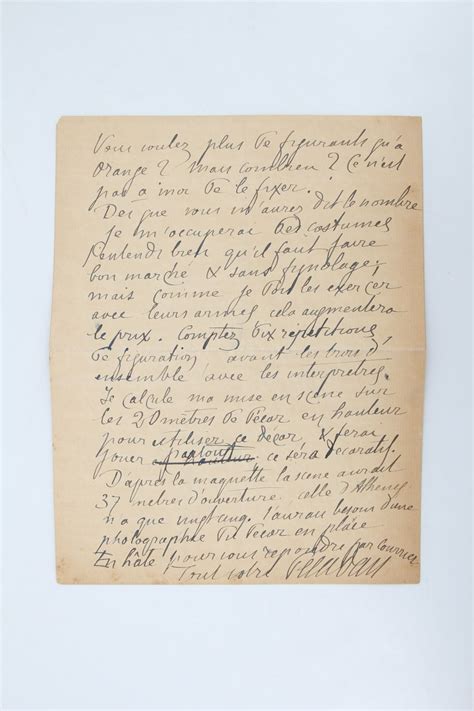 Vous voulez plus de figurants qu'à
Orange ? mais combien ? Ce n'est
pas à moi de le fixer.
Dès que vous m'aurez dit le nombre
je m'occuperai des costumes
J'entends bien qu'il faut faire
bon marché & sans
mais comme je dois les exercer
avec leurs armes, cela augmentera
le prix. Comptez dix répétitions
de figuration avant les trois d'
ensemble avec les interprètes.
Je calcule ma mise en scène sur
les 20 mètres de décor en hauteur
pour utiliser ce décor, & ferai
jouer partout ce sera décoratif.
D'après la maquette la scène aurait
37 mètres d'ouverture. celle d'Athènes
n'a que vingt cinq. J'aurai besoin d'une
photographie du décor en place
En hâte pour vous répondre par courrier
Tout votre Péladan